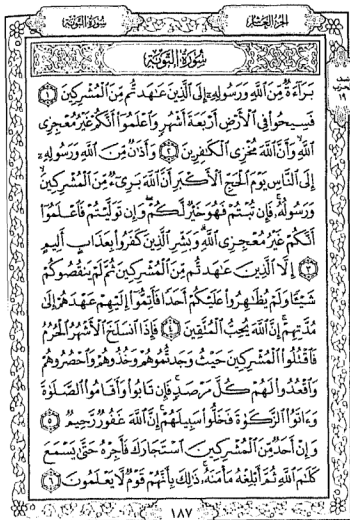 الجزء العاشر
سورة التوبة
سورة التوبة
براءة من الله ورسوله إلى الذين عاهدتم من المشركين ١
فسيحوا في الأرض أربعة أشهر واعلموا أنكم غير معجزي
الله وأن الله مخزي الكافرين ٢ وأذان من الله ورسوله
إلى الناس يوم الحج الأكبر أن الله بريء من المشركين
ورسوله فإن تبتم فهو خير لكم وإن توليتم فاعلموا
أنكم غير معجزي الله وبشر الذين كفروا بعذاب أليم
٣ إلا الذين عاهدتم من المشركين ثم لم ينقصوكم
شيئا ولم يظاهروا عليكم أحدا فأتموا إليهم عهدهم إلى
مدتهم إن الله يحب المتقين ٤ فإذا انسلخ الأشهر الحرم
فاقتلوا المشركين حيث وجدتموهم وخذوهم واحصروهم
واقعدوا لهم كل مرصد فإن تابوا وأقاموا الصلوة
وءاتوا الزكوة فخلوا سبيلهم إن الله غفور رحيم ٥
وإن أحد من المشركين استجارك فأجره حتى يسمع
كلم الله ثم أبلغه مأمنه ذلك بأنهم قوم لا يعلمون ٦
١٨٧